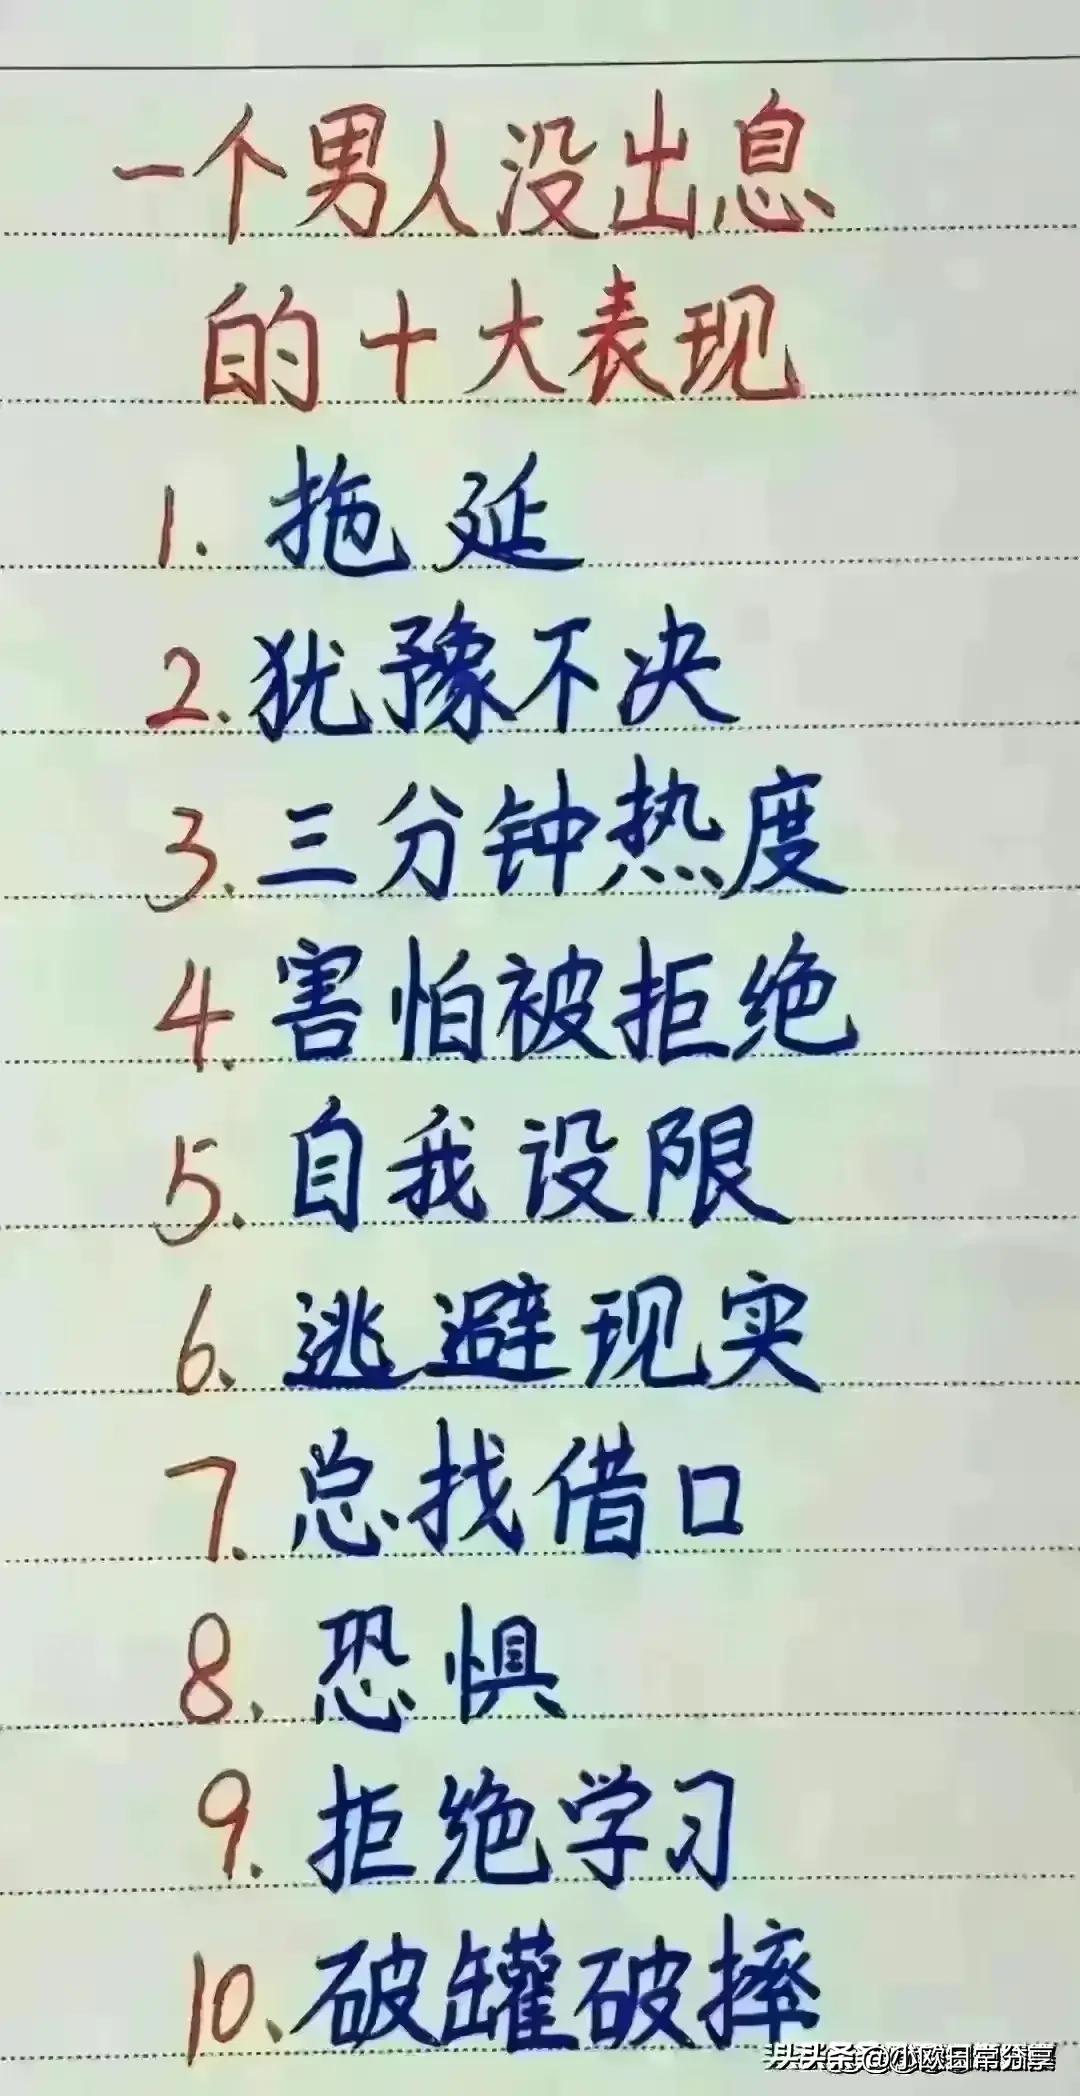 一个男人没出息
的十大表现
1. 拖延
2. 犹豫不决
3. 三分钟热度
4. 害怕被拒绝
5. 自我设限
6. 逃避现实
7. 总找借口
8. 恐惧
9. 拒绝学习
10. 破罐破摔
头条 @小欧日常分享